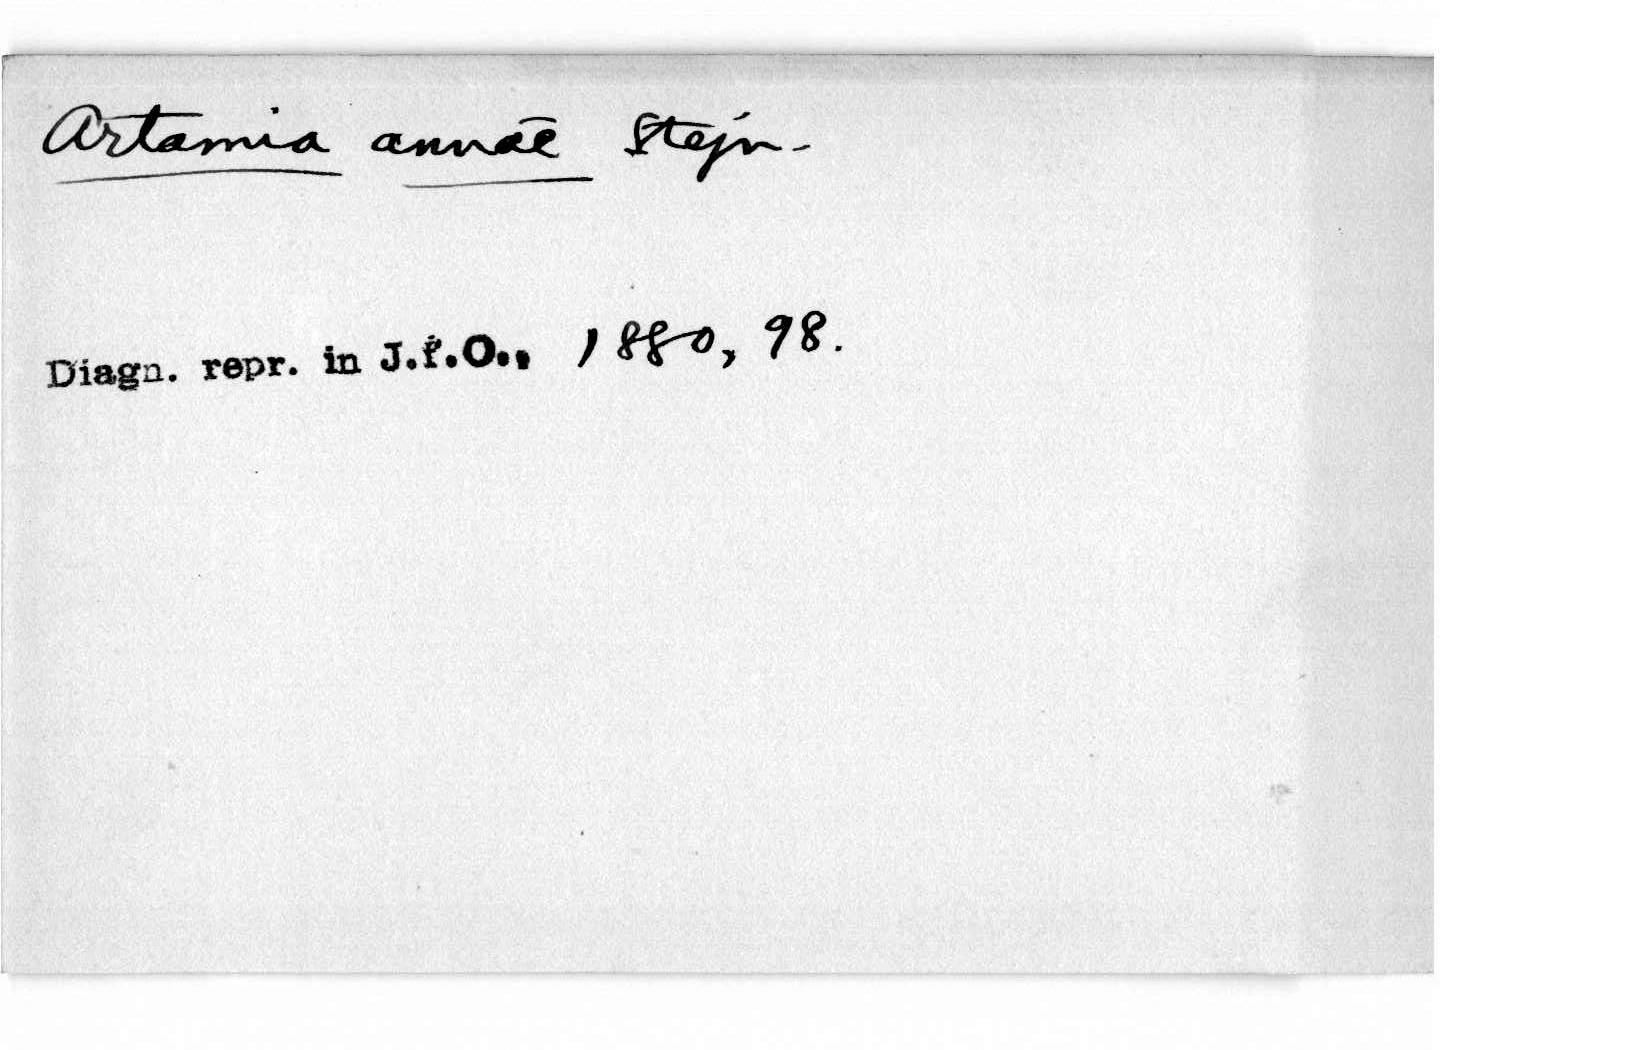 Artamia annae Stejn-
Diagn. repr. in J.f.O., 1880, 98.